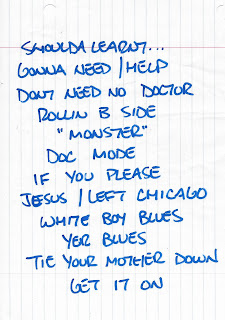 SHOULDA LEARNT...
GONNA NEED / HELP
DONT NEED NO DOCTOR
ROLLIN B SIDE
"MONSTER"
DOC MODE
IF YOU PLEASE
JESUS / LEFT CHICAGO
WHITE BOY BLUES
YER BLUES
TIE YOUR MOTHER DOWN
GET IT ON